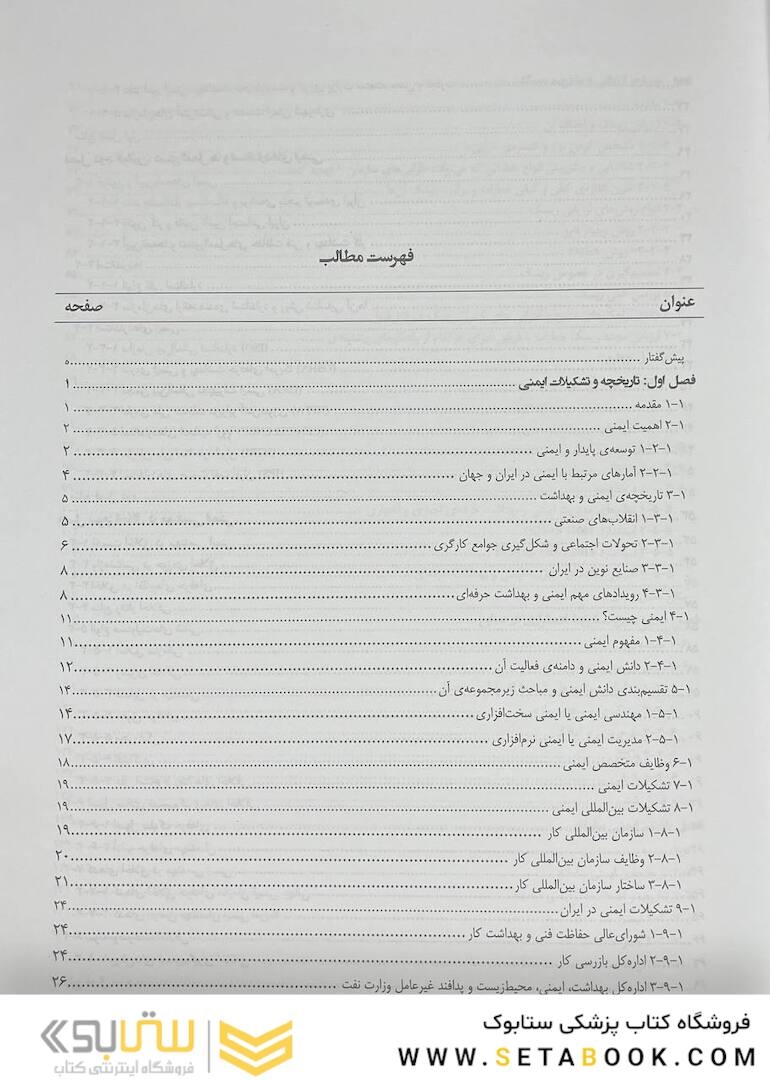 فهرست مطالب
عنوان صفحه
پیش‌گفتار ........ ه
فصل اول: تاریخچه و تشکیلات ایمنی ........ ۱
۱-۱ مقدمه ........ ۱
۱-۲ اهمیت ایمنی ........ ۲
۱-۲-۱ توسعه‌ی پایدار و ایمنی ........ ۲
۱-۲-۲ آمارهای مرتبط با ایمنی در ایران و جهان ........ ۴
۱-۳ تاریخچه‌ی ایمنی و بهداشت ........ ۵
۱-۳-۱ انقلاب‌های صنعتی ........ ۵
۱-۳-۲ تحولات اجتماعی و شکل‌گیری جوامع کارگری ........ ۶
۱-۳-۳ صنایع نوین در ایران ........ ۸
۱-۳-۴ رویدادهای مهم ایمنی و بهداشت حرفه‌ای ........ ۸
۱-۴ ایمنی چیست؟ ........ ۱۱
۱-۴-۱ مفهوم ایمنی ........ ۱۱
۱-۴-۲ دانش ایمنی و دامنه‌ی فعالیت آن ........ ۱۲
۱-۵ تقسیم‌بندی دانش ایمنی و مباحث زیرمجموعه‌ی آن ........ ۱۴
۱-۵-۱ مهندسی ایمنی یا ایمنی سخت‌افزاری ........ ۱۴
۱-۵-۲ مدیریت ایمنی یا ایمنی نرم‌افزاری ........ ۱۷
۱-۶ وظایف متخصص ایمنی ........ ۱۸
۱-۷ تشکیلات ایمنی ........ ۱۹
۱-۸ تشکیلات بین‌المللی ایمنی ........ ۱۹
۱-۸-۱ سازمان بین‌المللی کار ........ ۱۹
۱-۸-۲ وظایف سازمان بین‌المللی کار ........ ۲۰
۱-۸-۳ ساختار سازمان بین‌المللی کار ........ ۲۱
۱-۹ تشکیلات ایمنی در ایران ........ ۲۴
۱-۹-۱ شورای‌عالی حفاظت فنی و بهداشت کار ........ ۲۴
۱-۹-۲ اداره‌کل بازرسی کار ........ ۲۴
۱-۹-۳ اداره‌کل بهداشت، ایمنی، محیط‌زیست و پدافند غیرعامل وزارت نفت ........ ۲۶
فروشگاه کتاب پزشکی ستابوک
WWW.SETABOOK.COM
ستابوک
فروشگاه اینترنتی کتاب